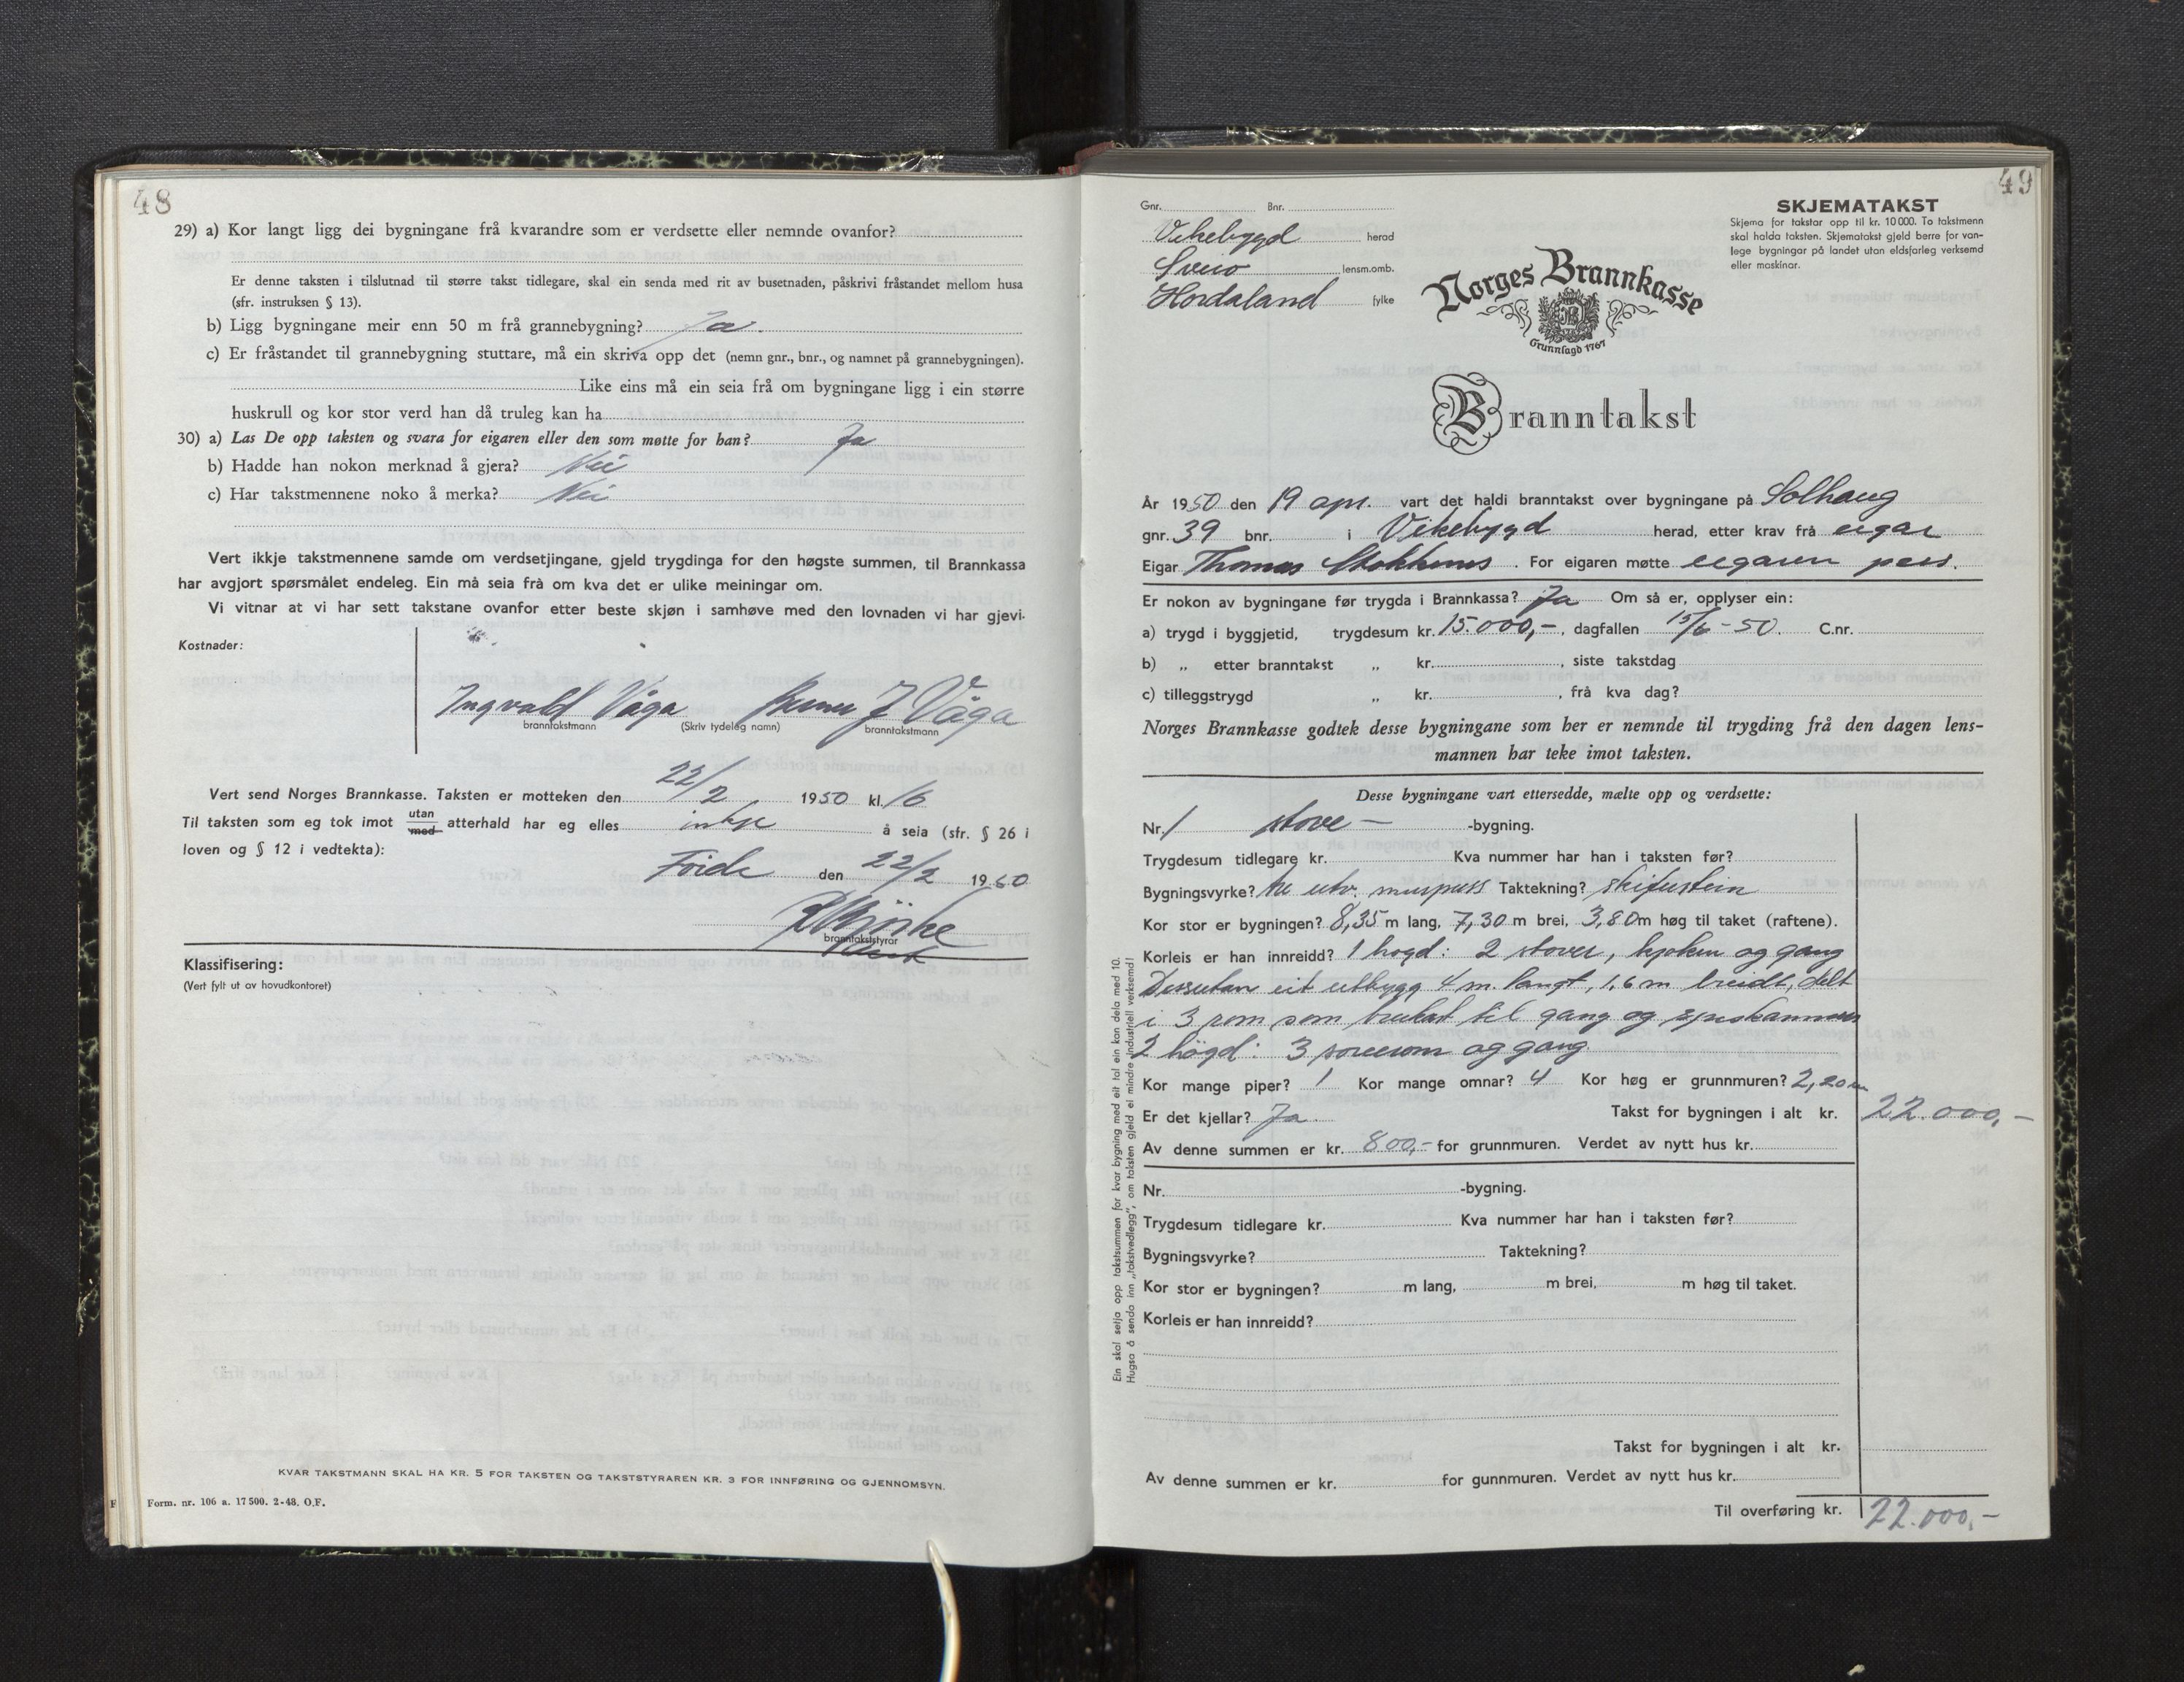 48
29) a) Kor langt ligg dei bygningane frå kvarandre som er verdsette eller nemnde ovanfor?
Er denne taksten i tilslutnad til større takst tidlegare, skal ein senda med rit av busetnaden, påskrivi fråstandet mellom husa
(sfr. instruksen § 13).
b) Ligg bygningane meir enn 50 m frå grannebygning? Ja.
c) Er fråstandet til grannebygning stuttare, må ein skriva opp det (nemn gnr., bnr., og namnet på grannebygningen).
Like eins må ein seia frå om bygningane ligg i ein større
huskrull og kor stor verd han då truleg kan ha
30) a) Las De opp taksten og svara for eigaren eller den som møtte for han? Ja
b) Hadde han nokon merknad å gjera? Nei
c) Har takstmennene noko å merka? Nei
Vert ikkje takstmennene samde om verdsetjingane, gjeld trygdinga for den høgste summen, til Brannkassa
har avgjort spørsmålet endeleg. Ein må seia frå om kva det er ulike meiningar om.
Vi vitnar at vi har sett takstane ovanfor etter beste skjøn i samhøve med den lovnaden vi har gjevi.
Kostnader:
Ingvald Våga J Våga
branntakstmann (Skriv tydeleg namn) branntakstmann
Vert send Norges Brannkasse. Taksten er motteken den 22/2 1950 kl. 16
Til taksten som eg tok imot utan med atterhald har eg elles intet å seia (sfr. § 26 i
loven og § 12 i vedtekta):
Førde den 22/2 1950
branntakststyrar
Klassifisering:
(Vert fylt ut av hovudkontoret)
KVAR TAKSTMANN SKAL HA KR. 5 FOR TAKSTEN OG TAKSTSTYRAREN KR. 3 FOR INNFØRING OG GJENNOMSYN.
Form. nr. 106 a. 17500. 2-48. O.F.
49
Gnr. Bnr.
Vikebygd herad
Sveio lensm.omb.
Hordaland fylke
SKJEMATAKST
Skjema for takstar opp til kr. 10 000. To takstmenn
skal halda taksten. Skjematakst gjeld berre for van-
lege bygningar på landet utan eldsfarleg verksemd
eller maskinar.
Norges Brannkasse
Grunnlagd 1767
Branntakst
År 1950 den 19 apr. vart det haldi branntakst over bygningane på Solhaug
gnr. 39 bnr. i Vikebygd herad, etter krav frå eigar
Eigar Thomas Stokkenes. For eigaren møtte eigaren pers.
Er nokon av bygningane før trygda i Brannkassa? Ja Om så er, opplyser ein:
a) trygd i byggjetid, trygdesum kr. 15.000,-, dagfallen 15/6-50. C.nr.
b) „ etter branntakst „ kr. , siste takstdag
c) tilleggstrygd „ kr. , frå kva dag?
Norges Brannkasse godtek desse bygningane som her er nemnde til trygding frå den dagen lens-
mannen har teke imot taksten.
Desse bygningane vart ettersedde, mælte opp og verdsette:
Nr. 1 stove- -bygning.
Trygdesum tidlegare kr. Kva nummer har han i taksten før?
Bygningsvyrke? tre utv. murpuss Taktekning? skiferstein
Kor stor er bygningen? 8,35 m lang, 7,30 m brei, 3,80 m høg til taket (raftene).
Korleis er han innreidd? 1 høgd: 2 stover, kjøken og gang
Dessutan eit utbygg 4 m. langt, 1,6 m breidt, delt
i 3 rom som brukast til gang og spiskammers
2 høgd: 3 soverom og gang.
Kor mange piper? 1 Kor mange omnar? 4 Kor høg er grunnmuren? 2,20 m
Er det kjellar? Ja. Takst for bygningen i alt kr. 22.000,-
Av denne summen er kr. 800,- for grunnmuren. Verdet av nytt hus kr.
Nr. -bygning.
Trygdesum tidlegare kr. Kva nummer har han i taksten før?
Bygningsvyrke? Taktekning?
Kor stor er bygningen? m lang, m brei, m høg til taket.
Korleis er han innreidd?
Takst for bygningen i alt kr.
Av denne summen er kr. for gunnmuren. Verdet av nytt hus kr.
Til overføring kr. 22.000,-
Ein skal setja opp takstsummen for kvar bygning med eit tal ein kan dela med 10.
Hugsa å senda inn „takstvedlegg”, om taksten gjeld ei mindre industriell verksemd!